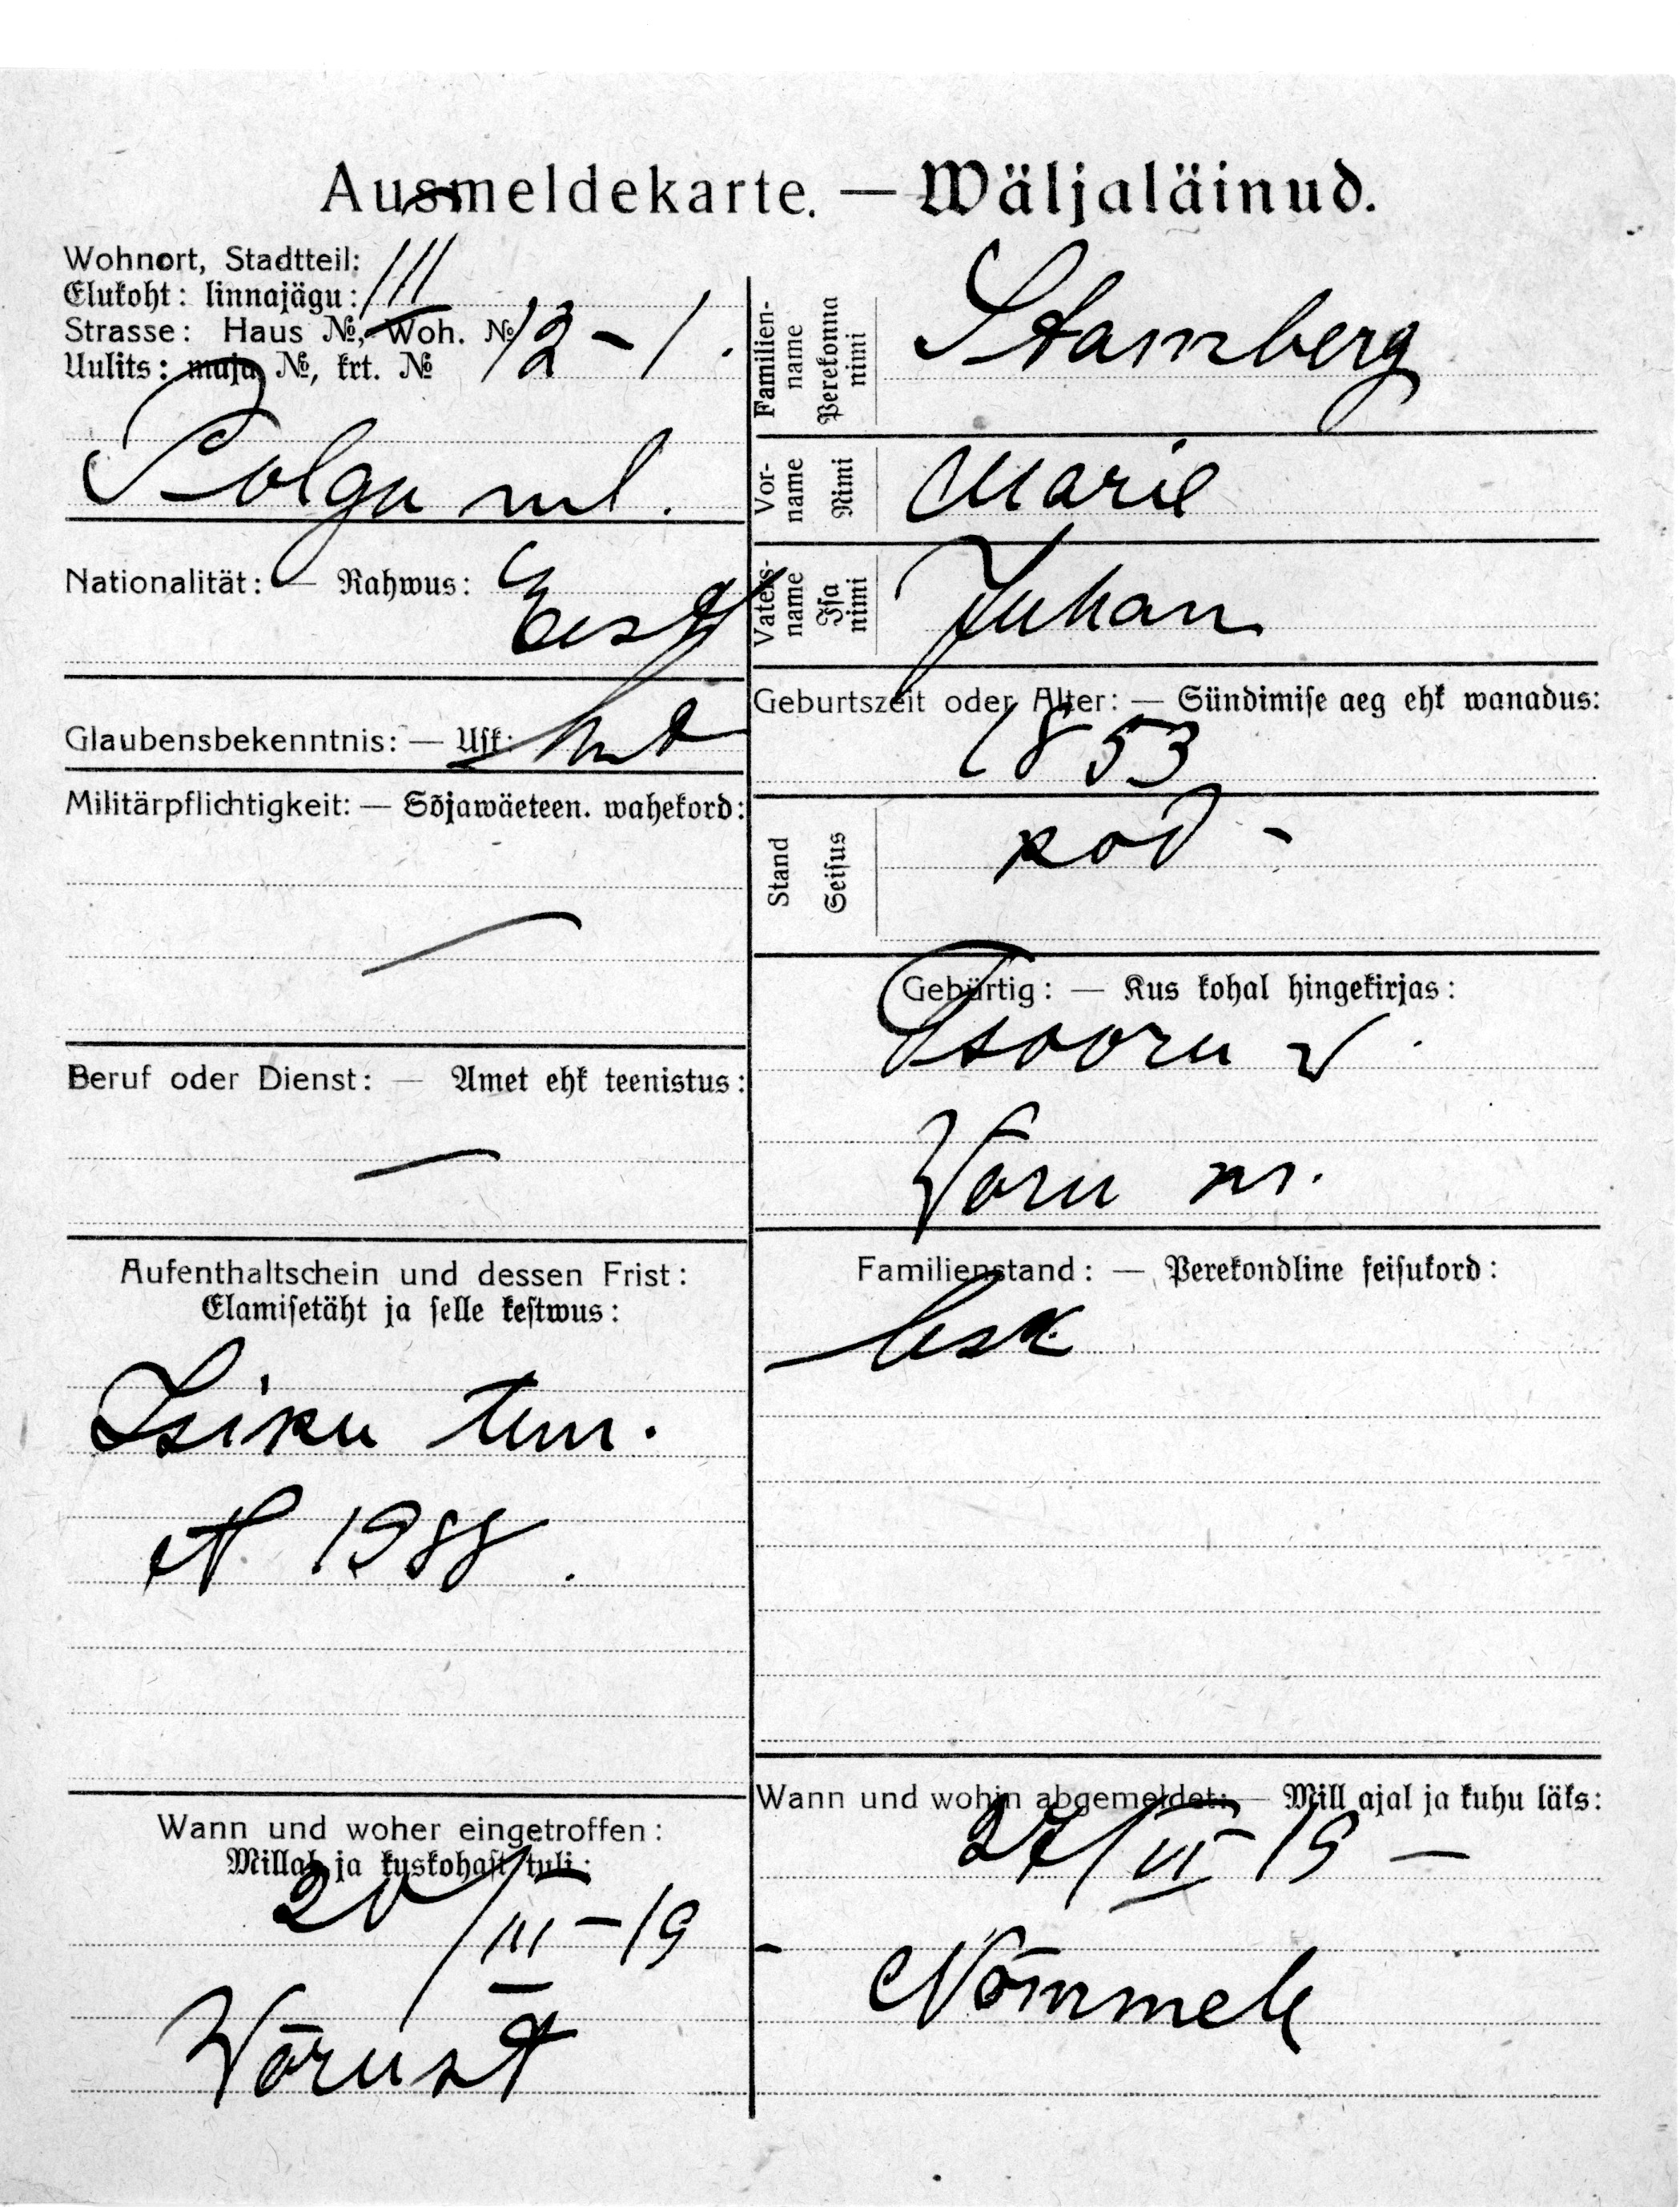 Ausmeldekarte. — Wäljaläinud.
Wohnort, Stadtteil:
Elukoht: linnajägu: III
Strasse: Haus №, Woh. №
Uulits: maja №, krt. № 12 – 1.
Nationalität: — Rahwus: Eest
Glaubensbekenntnis: — Usk: Lut
Militärpflichtigkeit: — Sõjawäeteen. wahekord:
—
Beruf oder Dienst: — Amet ehk teenistus:
—
Aufenthaltschein und dessen Frist:
Elamisetäht ja selle kestwus:
Isiku tun.
№ 1988.
Wann und woher eingetroffen:
Millal ja kuskohast tuli:
20/III – 19
Võrust
Familien-
name
Perekonna
nimi
Stamberg
Vor-
name
Nimi
Marie
Vaters-
name
Isa
nimi
Juhan
Geburtszeit oder Alter: — Sündimise aeg ehk wanadus:
1853
Stand
Seisus
kod –
Gebürtig: — Kus kohal hingekirjas:
Tsooru v.
Võru m.
Familienstand: — Perekondline seisukord:
lesk
Wann und wohin abgemeldet: — Mill ajal ja kuhu läks:
27/VI – 19 –
Nõmmele